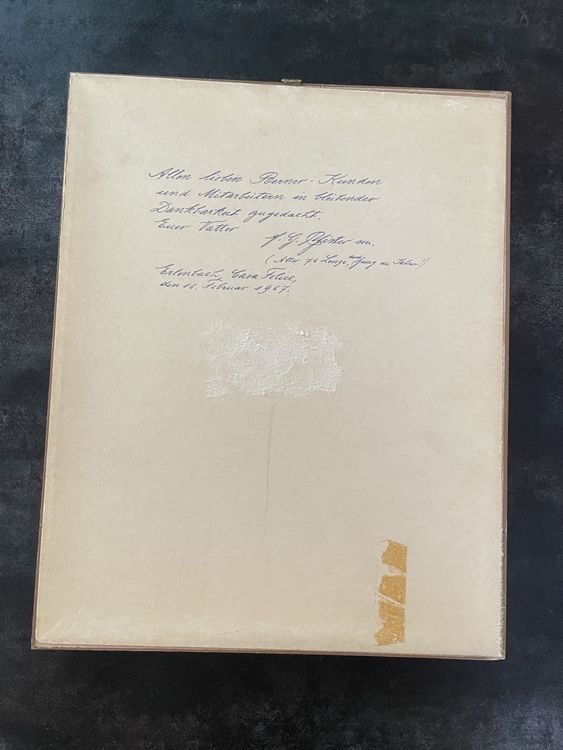 Allen lieben Berner-Kunden
und Mitarbeitern in bleibender
Dankbarkeit zugedacht.
Euer Vatter
F. G. Pfister sen.
(Alter 76 Lenze, jung an Jahren!)
Erlenbach, Casa Felice,
den 16. Februar 1967.